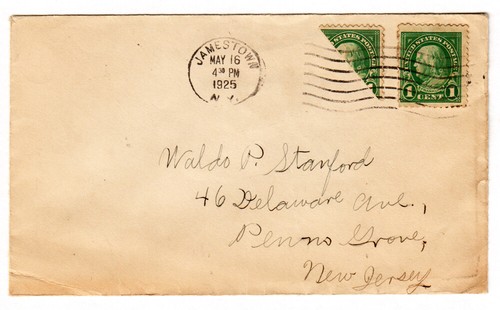 JAMESTOWN
MAY 16
4 30 PM
1925
N.Y.
UNITED STATES POSTAGE
1 CENT 1
Waldo P. Stanford
46 Delaware Ave.,
Penns Grove,
New Jersey